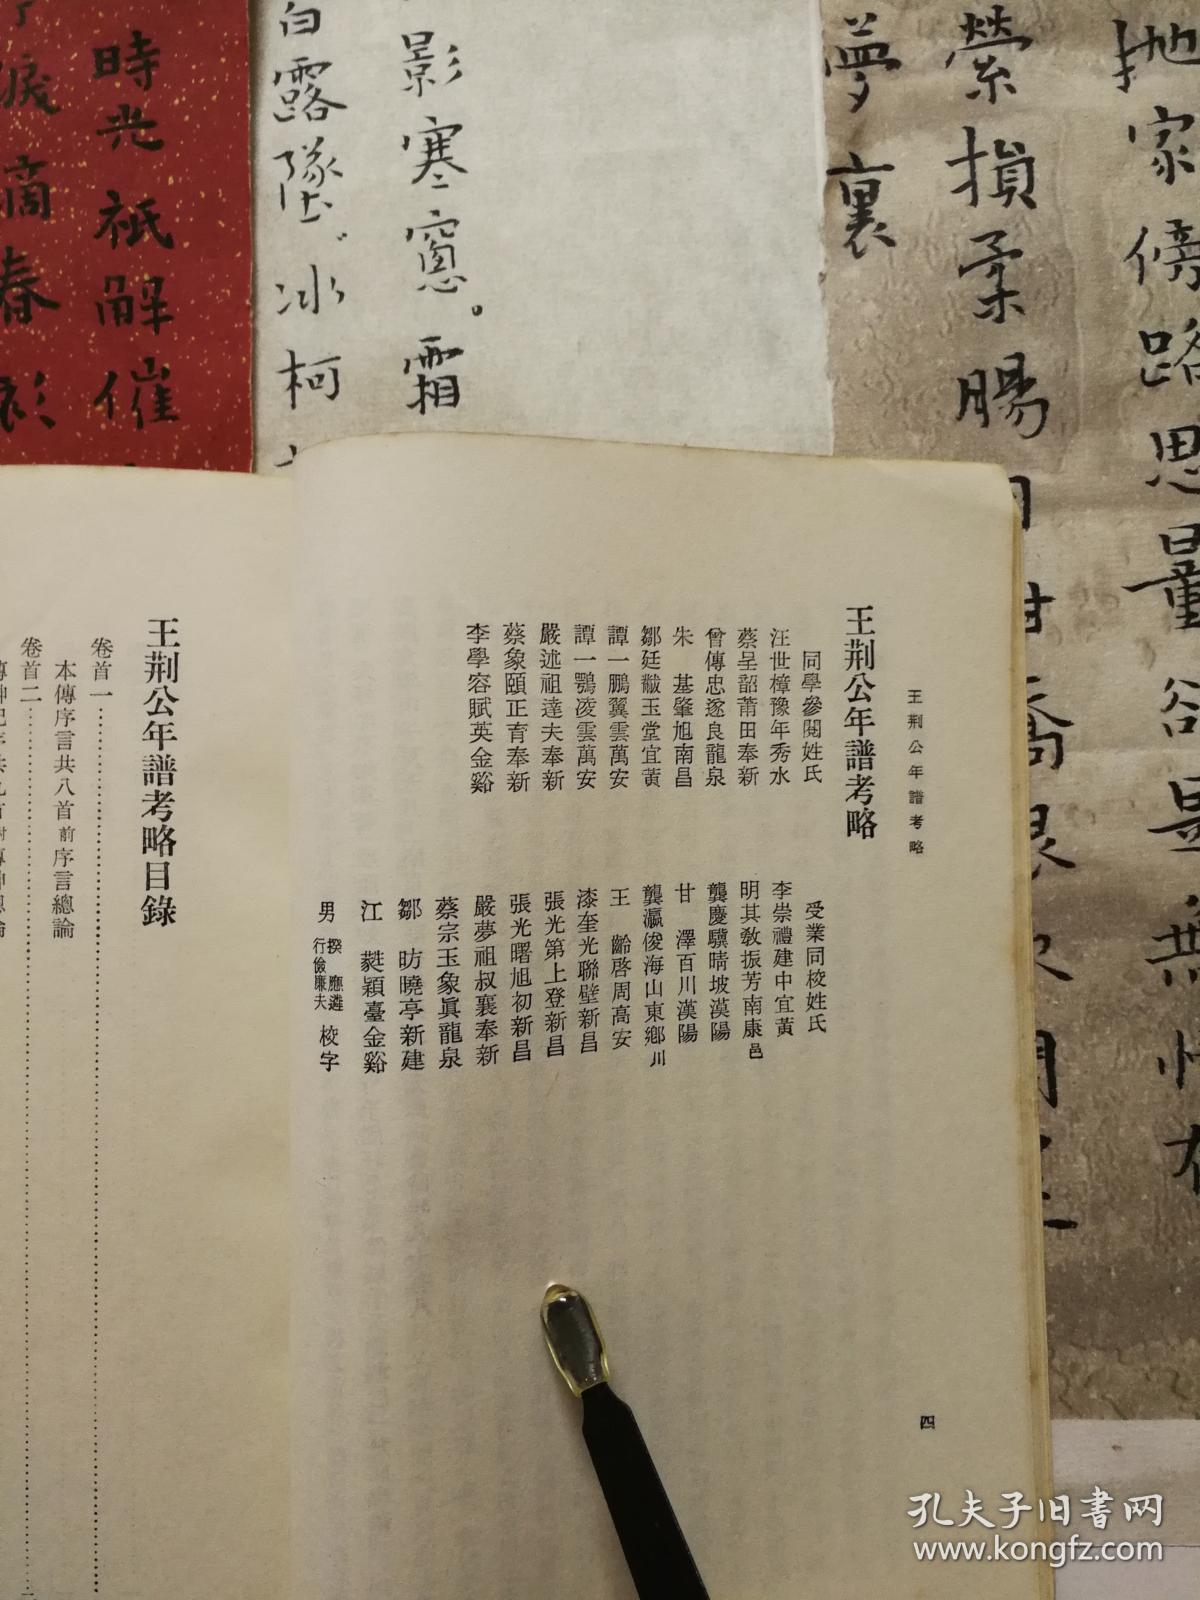 王荆公年譜考略
四
王荆公年譜考略
同學參閱姓氏
汪世樟豫年秀水
蔡呈韶莆田奉新
曾傳忠遂良龍泉
朱　基肇旭南昌
鄒廷黻玉堂宜黃
譚一鵬翼雲萬安
譚一鶚凌雲萬安
嚴述祖達夫奉新
蔡象頤正育奉新
李學容賦英金谿
受業同校姓氏
李崇禮建中宜黃
明其敎振芳南康邑
龔慶驥晴坡漢陽
甘　澤百川漢陽
龔瀛俊海山東鄉川
王　齡啓周高安
漆奎光聯壁新昌
張光第上登新昌
張光曙旭初新昌
嚴夢祖叔襄奉新
蔡宗玉象眞龍泉
鄒　昉曉亭新建
江　㲄穎臺金谿
男　揆應遴
行儉廉夫　校字
王荆公年譜考略目錄
卷首一
本傳序言共八首前序言總論
卷首二
時光祇解催
滴春
影寒窻。霜
白露墜。冰柯
夢裏
縈損柔腸
抛家傍路思量卻是無情有
孔夫子旧书网
www.kongfz.com